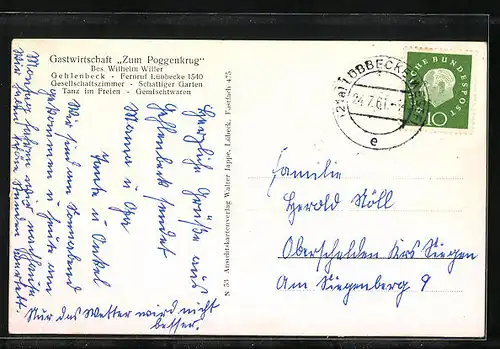 Gastwirtschaft „Zum Poggenkrug"
Bes. Wilhelm Willer
Gehlenbeck - Fernruf Lübbecke 1540
Gesellschaftszimmer - Schattiger Garten
Tanz im Freien - Gemischtwaren
Herzliche Grüße aus
Gehlenbeck sendet
Mama u Opa
Tante u Onkel
Wir sind am Sonnabend
gekommen u heute am
Morgen fahren wir nach Hause
Wir haben schöne Stunden
Nur das Wetter wird nicht
besser.
N 53 Ansichtskartenverlag Walter Jappe, Lübeck, Postfach 475
(21a) LÜBBECKE
24.7.61
e
DEUTSCHE BUNDESPOST
10
Familie
Herold Nöll
Oberschelden Krs Siegen
Am Siegenberg 9